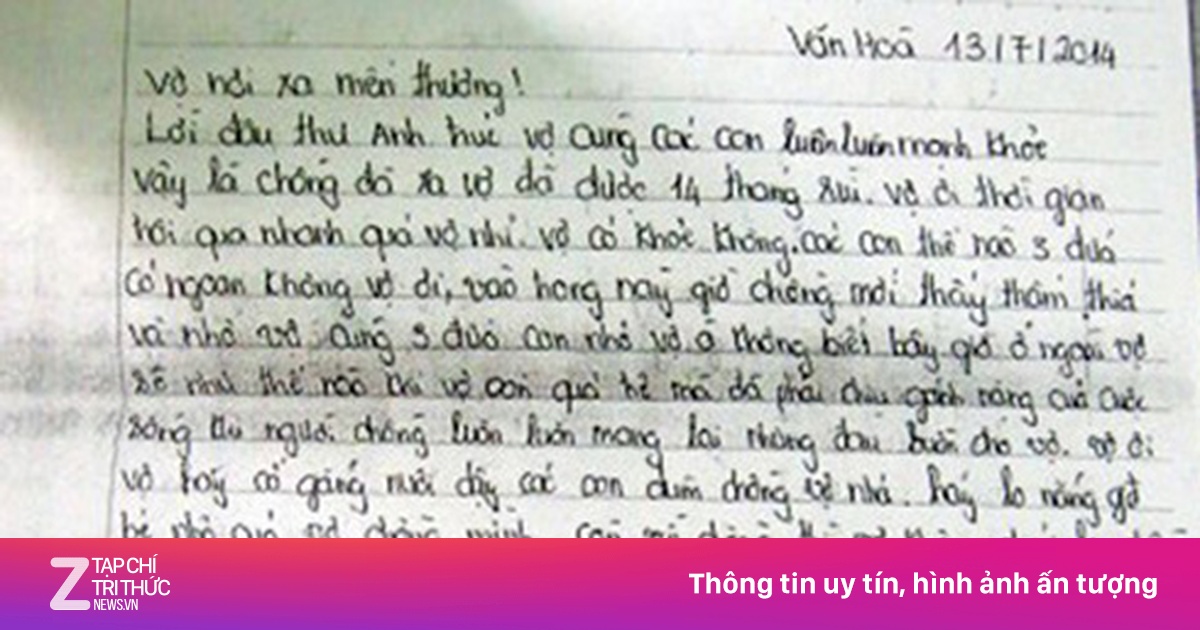 Văn Hoá 13/7/2014
Vợ nơi xa mến thương!
Lời đầu thư Anh húc vợ cùng các con luôn luôn mạnh khỏe
Vậy là chồng đã xa vợ đã được 14 tháng rùi. Vợ ơi thời gian
trôi qua nhanh quá vợ nhỉ. vợ có khỏe không. các con thế nào 3 đứa
có ngoan không vợ ơi, vào hong này giờ chồng mới thấy thấm thía
và nhớ vợ cùng 3 đứa con nhỏ vợ ạ không biết bây giờ ở ngoài vợ
sẽ như thế nào khi vợ còn quá trẻ mà đã phải chịu gánh nặng của cuộc
sống người chồng luôn luôn mang lại những đau buồn cho vợ. vợ ơi
vợ hãy cố gắng nuôi dậy các con dùm chồng vợ nhá. hãy lo nắng gờ
TẠP CHÍ
TRI THỨC
NEWS.VN
Thông tin uy tín, hình ảnh ấn tượng